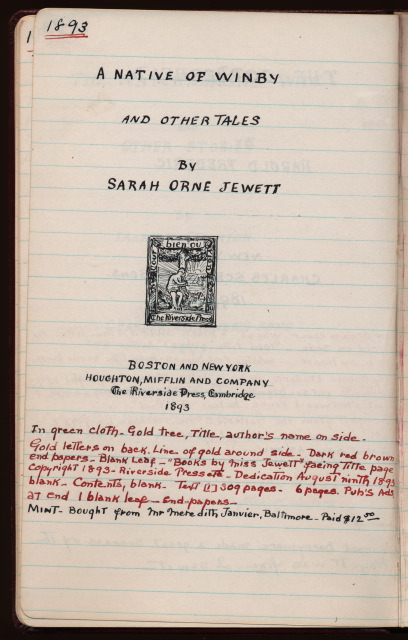 1893
A NATIVE OF WINBY
AND OTHER TALES
By
SARAH ORNE JEWETT
TOUT BIEN OU RIEN
The Riverside Press
BOSTON AND NEW YORK
HOUGHTON, MIFFLIN AND COMPANY
The Riverside Press, Cambridge
1893
In green cloth - Gold tree, Title, author's name on side -
Gold letters on back. Line of gold around side - Dark red brown
End papers - Blank Leaf - "Books by Miss Jewett" facing Title page
Copyright 1893 - Riverside Press etc - Dedication August ninth 1893
blank - Contents, blank - Text [1] 309 pages - 6 pages Pub's Ads
at End 1 blank leaf - End-papers -
MINT - Bought from Mr Meredith Janvier, Baltimore - Paid $12.50